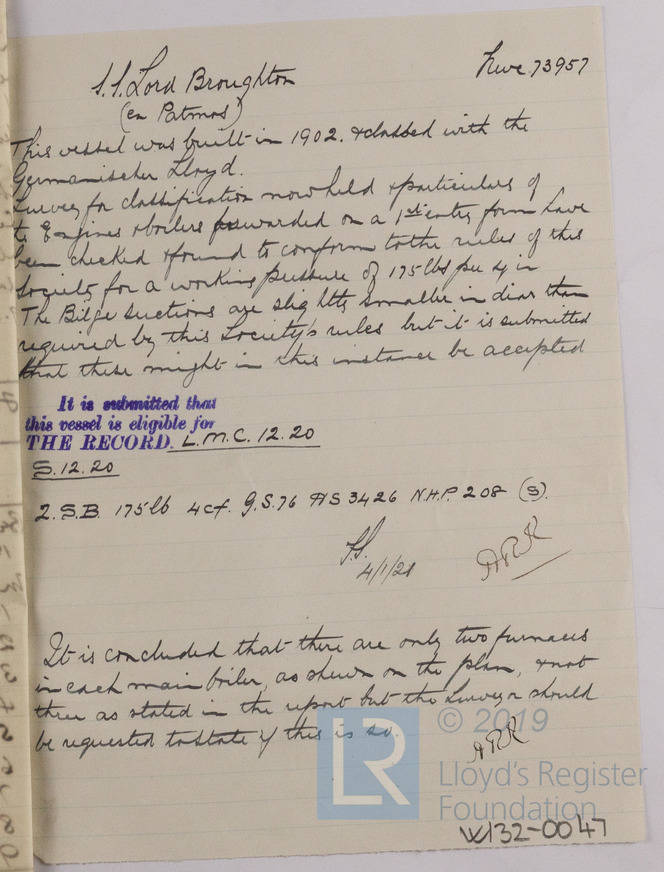 S.S. Lord Broughton
Nwc 73957
(ex Patmos)
This vessel was built in 1902. & classed with the
Germanischer Lloyd.
Survey for classification now held & particulars of
the Engines & boilers forwarded on a 1st entry form have
been checked & found to conform to the rules of this
Society for a working pressure of 175 lbs per sq in
The Bilge Suctions are slightly smaller in diar than
required by this Society's rules but it is submitted
that these might in this instance be accepted
It is submitted that
this vessel is eligible for
THE RECORD. L.M.C. 12.20
S. 12.20
2. S.B. 175 lb 4 cf. G.S. 76 HS 3426 N.H.P. 208 (S).
4/1/21
ARK
It is concluded that there are only two furnaces
in each main boiler, as shewn on the plan, & not
three as stated in the report but the Surveyor should
be requested to state if this is so.
ARK
LR
© 2019
Lloyd's Register
Foundation
W132-0047